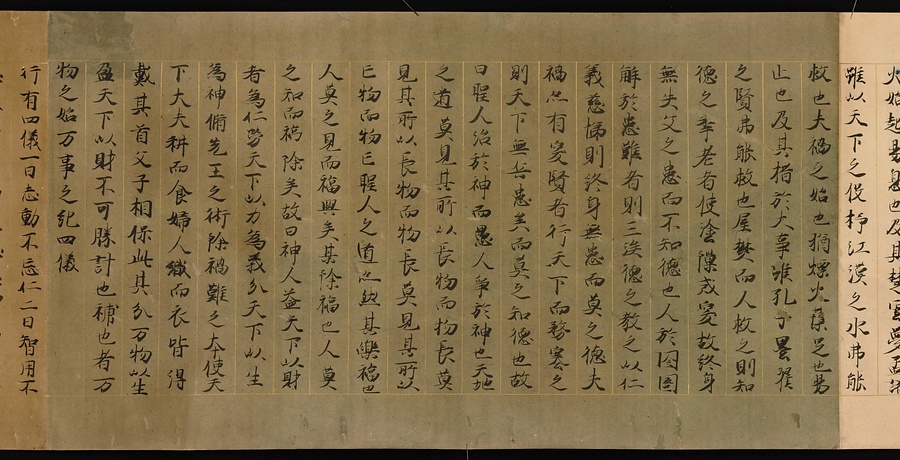 火始起易息也及其焚雲夢孟
雖以天下之役抒江漢之水弗能
救也夫禍之始也猶熛火蘖足也易
止也及其措於大事雖孔子墨翟
之賢弗能救也屋焚而人救之則知
德之年老者使塗隙戒突故終身
無失火之患而不知德也人於囹圄
解於患難者則三族德之教之以仁
義慈悌則終身無患而莫之德夫
禍亦有突賢者行天下而務塞之
則天下無兵患矣而莫之知德也故
曰聖人治於神而愚人爭於神也天地
之道莫見其所以長物而物長莫
見其所以長物而物長莫見其所以
亡物而物亡聖人之道亦然其興福也
人莫之見而福興矣其除禍也人莫
之知而禍除矣故曰神人益天下以財
者為仁勞天下以力為義分天下以生
為神脩先王之術除禍難之本使天
下大夫耕而食婦人織而衣皆得
戴其首父子相保此其分万物以生
盈天下以財不可勝計也補也者万
物之始万事之紀四儀
行有四儀一曰志動不忘仁二曰智用不